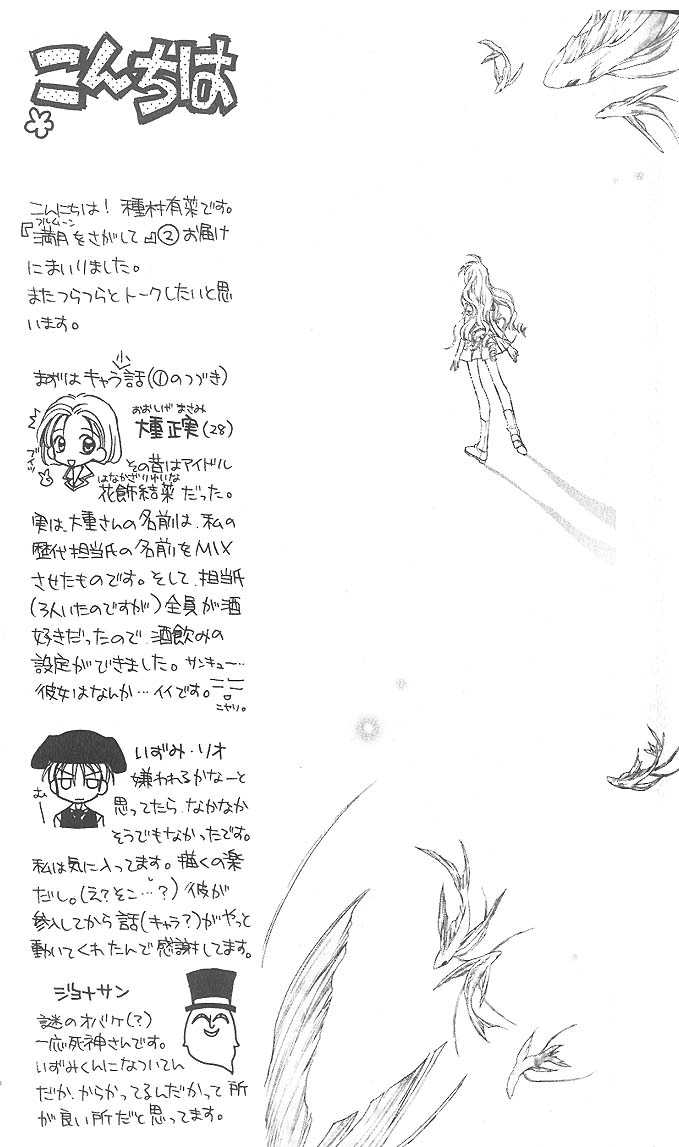 こんちは
こんにちは! 種村有菜です。
フルムーン
『満月をさがして』② お届け
にまいりました。
またつらつらとトークしたいと思
います。
小
まずは キャラ話(①のつづき)
おおしげ まさみ
大重 正実(28)
ブイッ
その昔はアイドル
はなかざり ゆいな
花飾結菜 だった。
実は、大重さんの名前は、私の
歴代担当氏の名前をMIX
させたものです。そして、担当氏
(3人いたのですが)全員が酒
好きだったので、酒飲みの
設定ができました。サンキュー…
彼女はなんか…イイです。
ニヤリ。
いずみ・リオ
むー
嫌われるかなーと
思ってたら、なかなか
そうでもなかったです。
私は気に入ってます。描くの楽
だし。(え?そこ…?) 彼が
参入してから話(キャラ?)がやっと
動いてくれたんで感謝してます。
ジョナサン
謎のオバケ(?)
一応死神さんです。
いずみくんになついてん
だか、からかってるんだかって所
が良い所だと思ってます。